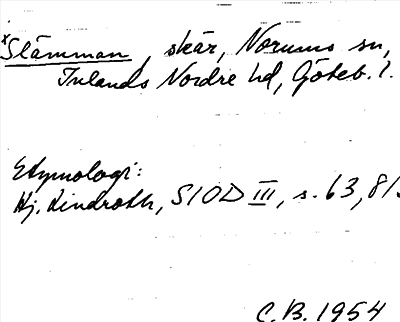 *Slämman, skär, Norums sn,
Inlands Nordre hd, Göteb. l.
Etymologi:
Hj. Lindroth, SIOD III, s. 63, 81
C.B. 1954